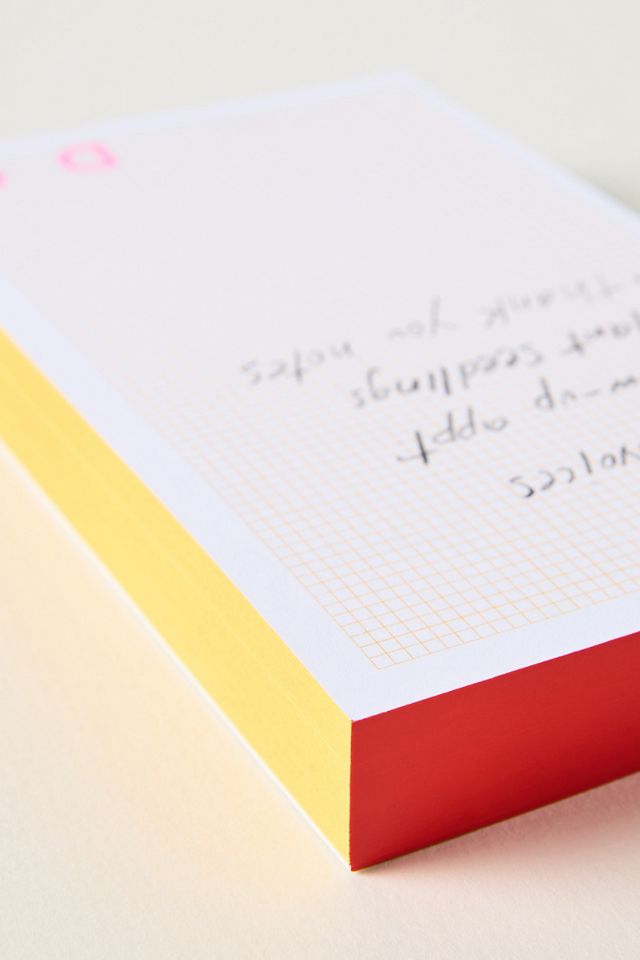 voices
w-up appt
lant seedlings
Thank you notes